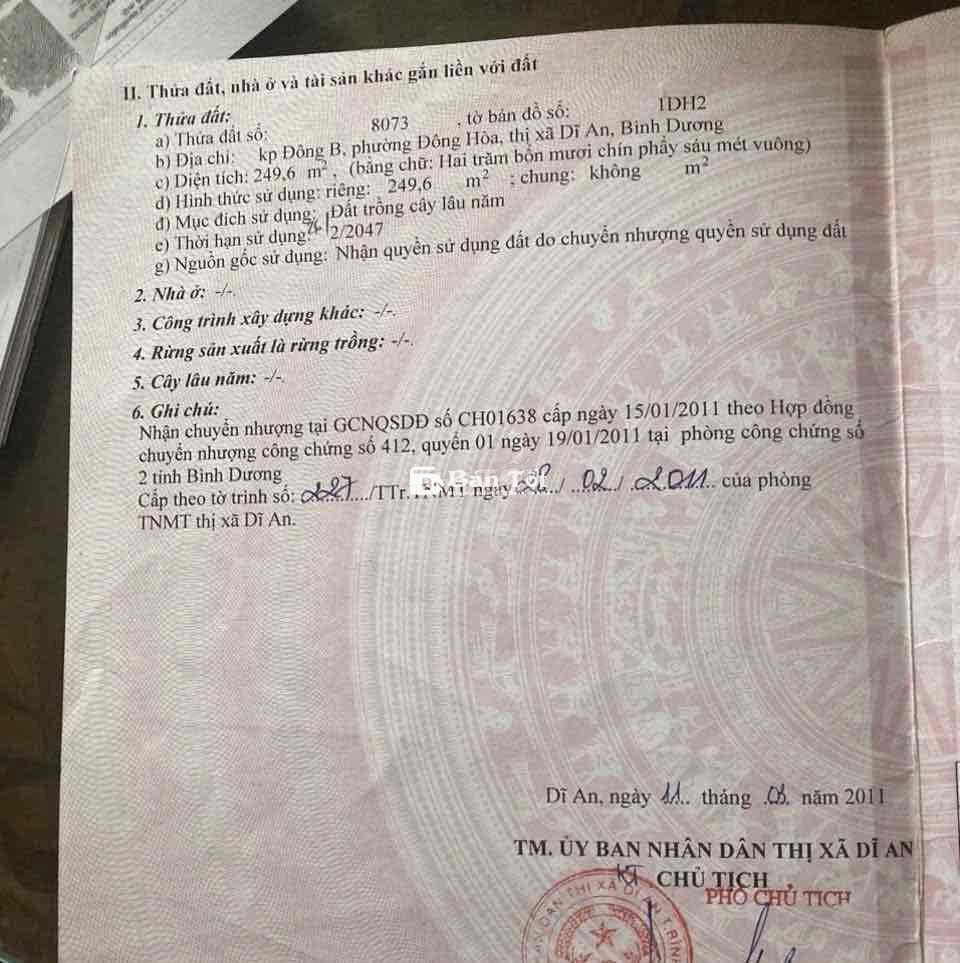 II. Thửa đất, nhà ở và tài sản khác gắn liền với đất
1. Thửa đất:
a) Thửa đất số: 8073 , tờ bản đồ số: 1DH2
b) Địa chỉ: kp Đông B, phường Đông Hòa, thị xã Dĩ An, Bình Dương
c) Diện tích: 249,6 m², (bằng chữ: Hai trăm bốn mươi chín phẩy sáu mét vuông)
d) Hình thức sử dụng: riêng: 249,6 m² ; chung: không m²
đ) Mục đích sử dụng: Đất trồng cây lâu năm
e) Thời hạn sử dụng: 12/2047
g) Nguồn gốc sử dụng: Nhận quyền sử dụng đất do chuyển nhượng quyền sử dụng đất
2. Nhà ở: -/-.
3. Công trình xây dựng khác: -/-.
4. Rừng sản xuất là rừng trồng: -/-.
5. Cây lâu năm: -/-.
6. Ghi chú:
Nhận chuyển nhượng tại GCNQSDĐ số CH01638 cấp ngày 15/01/2011 theo Hợp đồng
chuyển nhượng công chứng số 412, quyển 01 ngày 19/01/2011 tại phòng công chứng số
2 tỉnh Bình Dương
Cấp theo tờ trình số: 227/TTr.TNMT ngày 28/02/2011 của phòng
TNMT thị xã Dĩ An.
Bán Tôi
Dĩ An, ngày 11 tháng 03 năm 2011
TM. ỦY BAN NHÂN DÂN THỊ XÃ DĨ AN
KT CHỦ TỊCH
PHÓ CHỦ TỊCH
DÂN THỊ XÃ DĨ AN